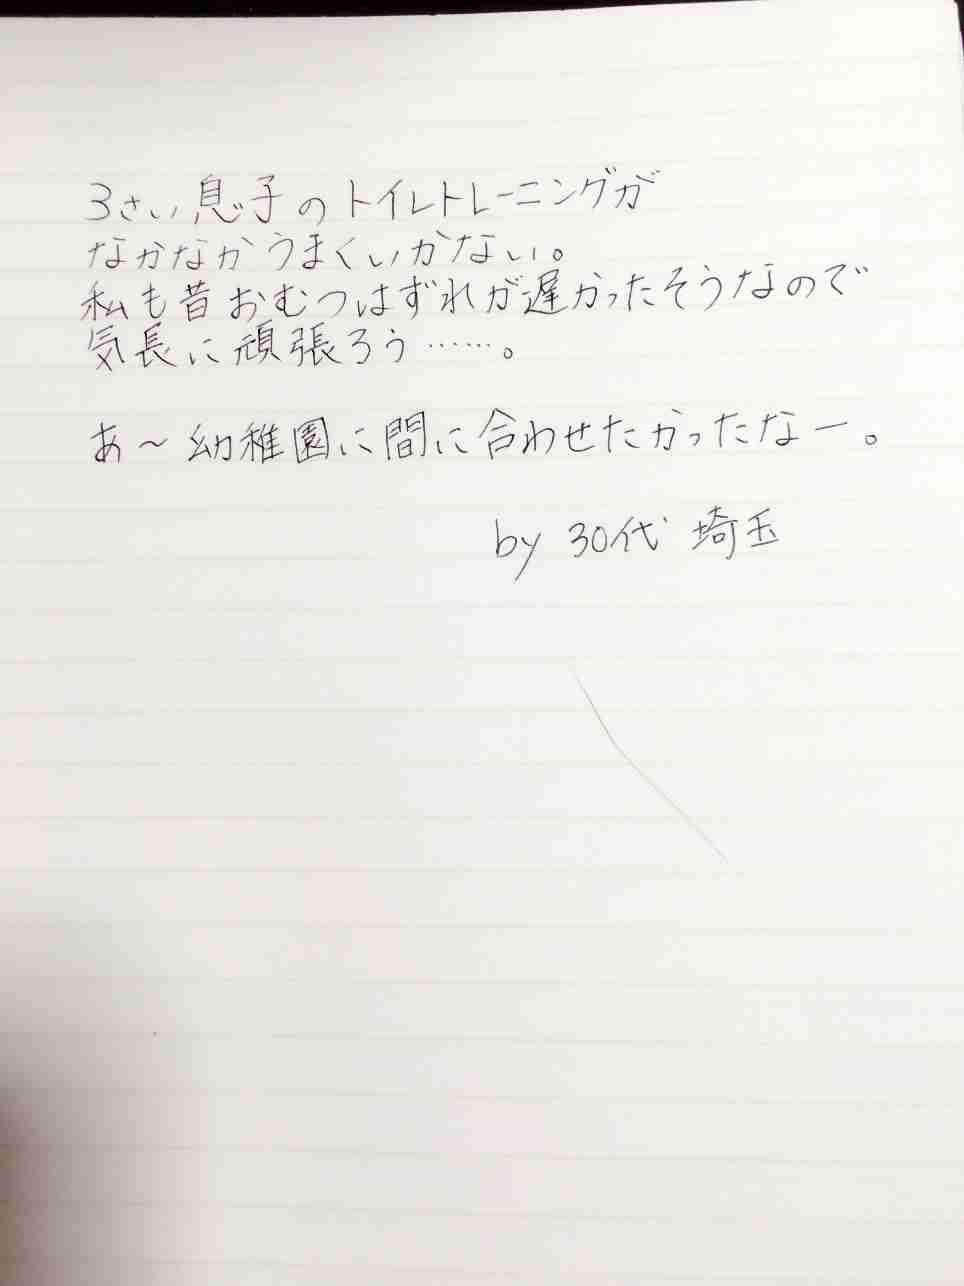 3さい息子のトイレトレーニングが
なかなかうまくいかない。
私も昔おむつはずれが遅かったそうなので
気長に頑張ろう……。
あ～幼稚園に間に合わせたかったなー。
by 30代 埼玉